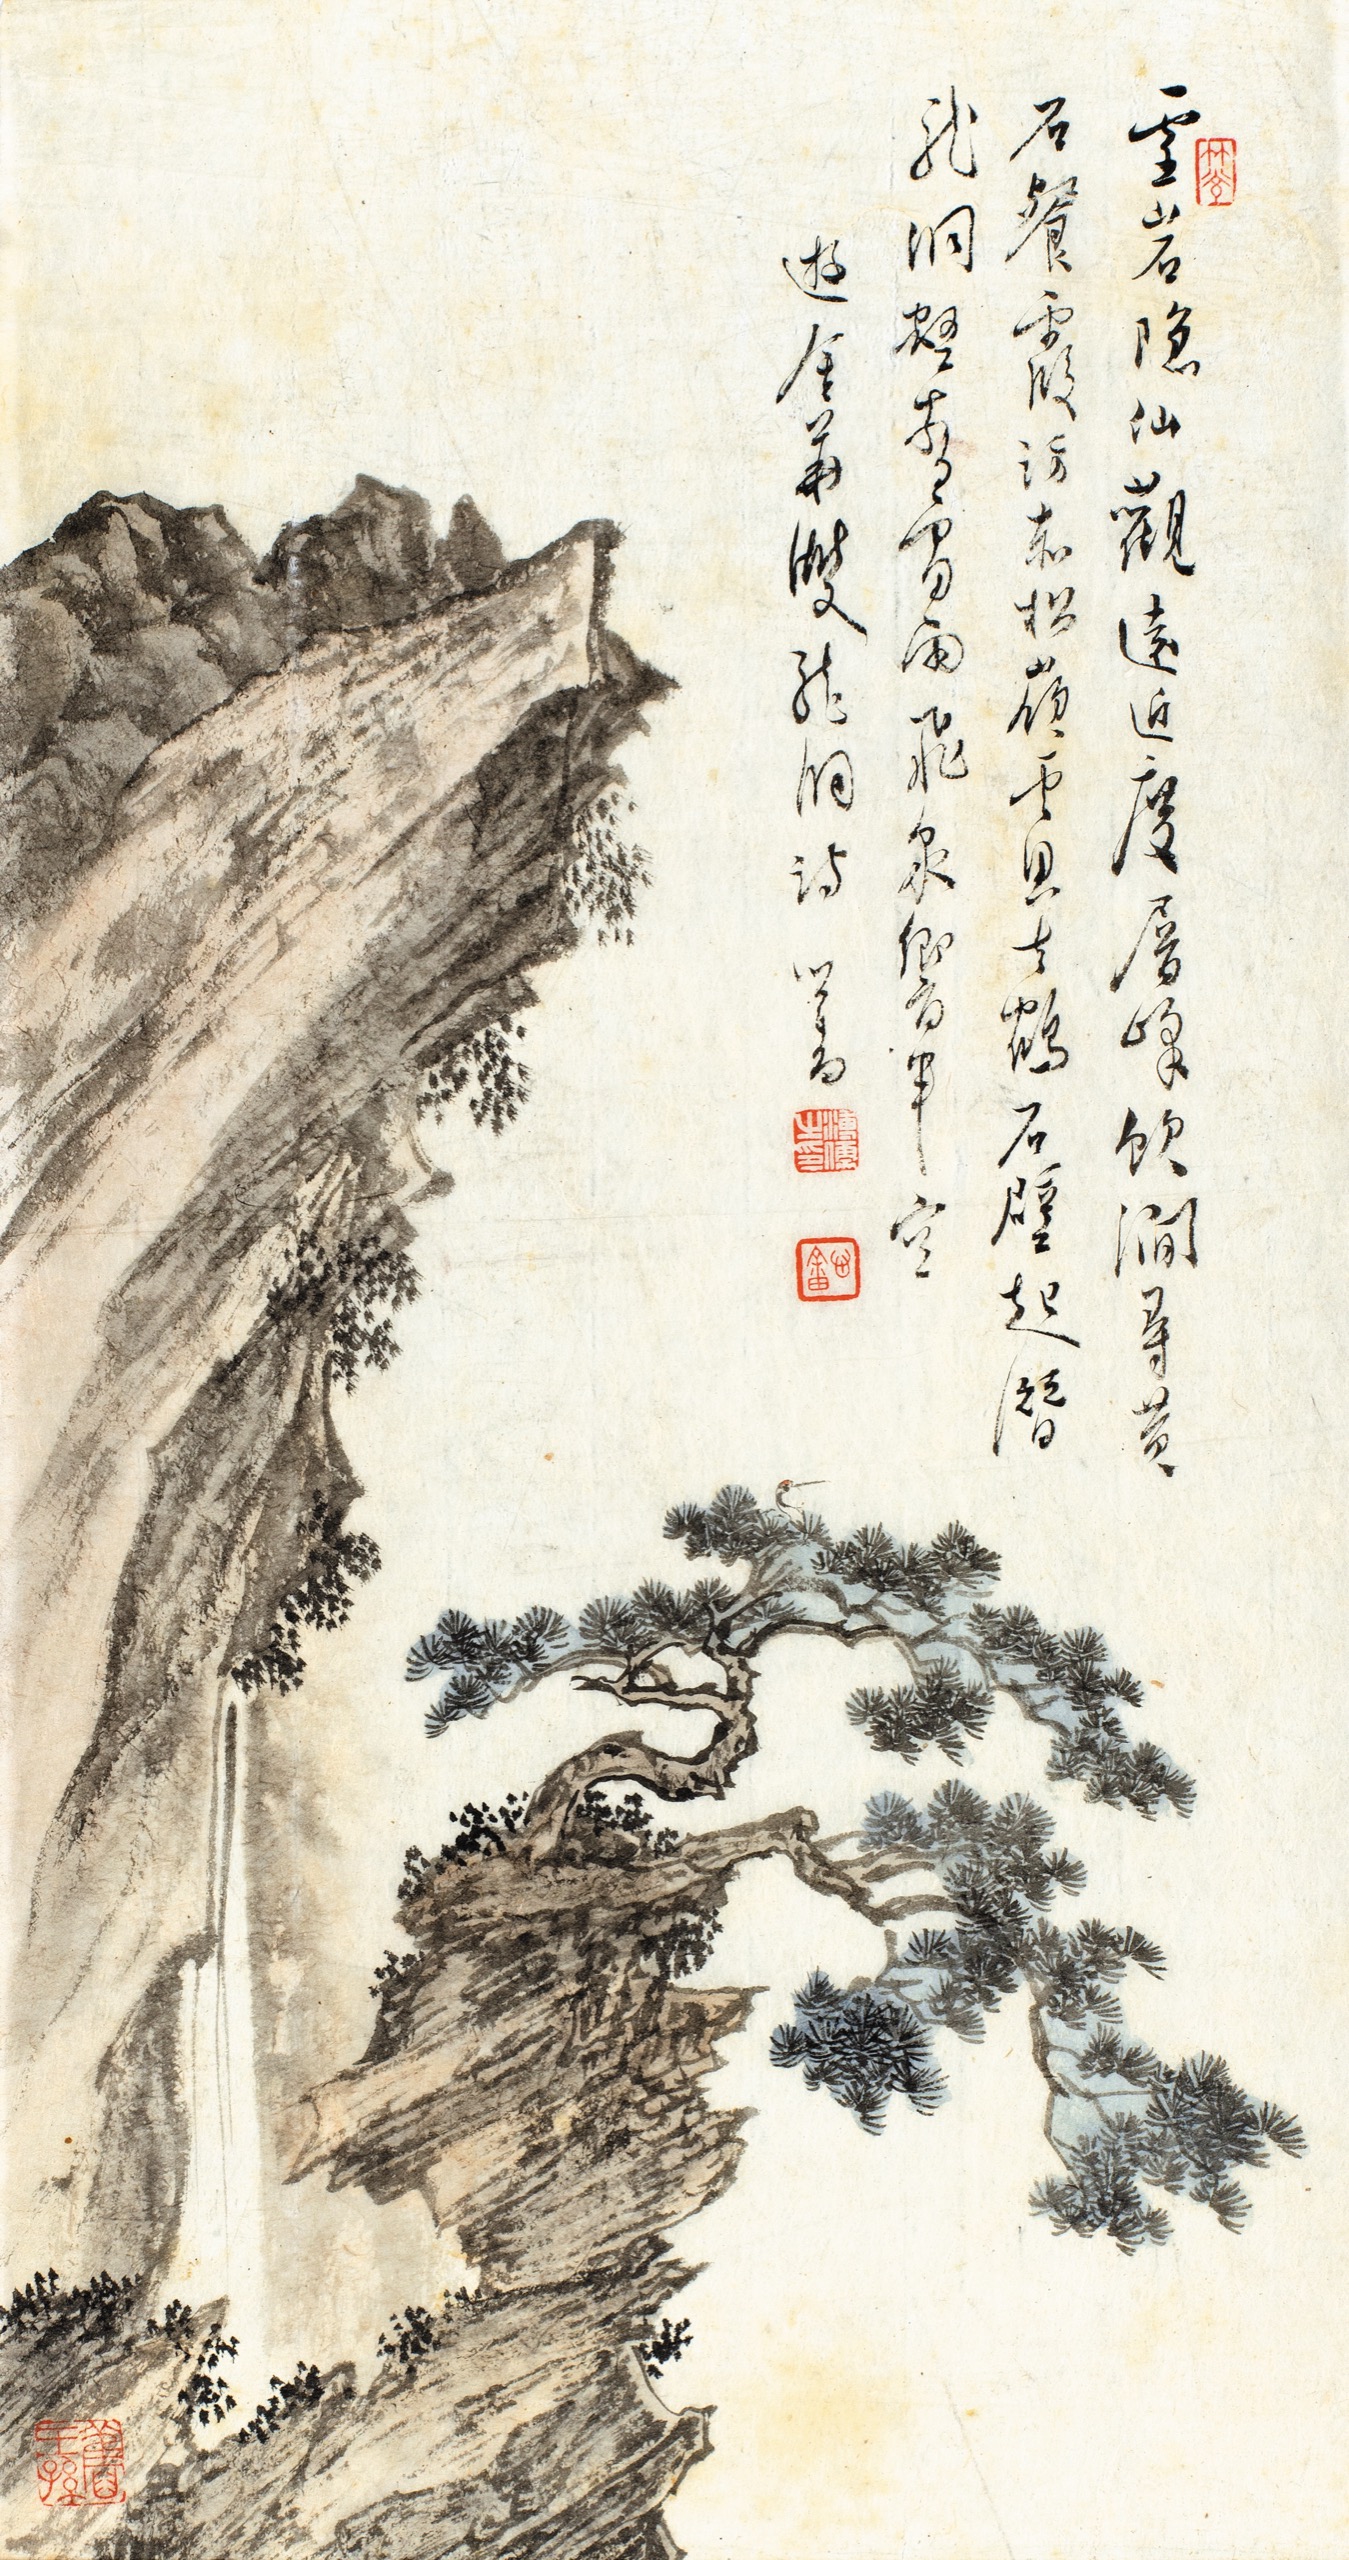 雲岩隐仙觀遠近度層峰飲澗尋黄
石餐霞訪赤松嶺雲思古鶴石壁起潛
龍洞壑春雷雨飛泉響半空
遊金華雙龍洞詩 心畬